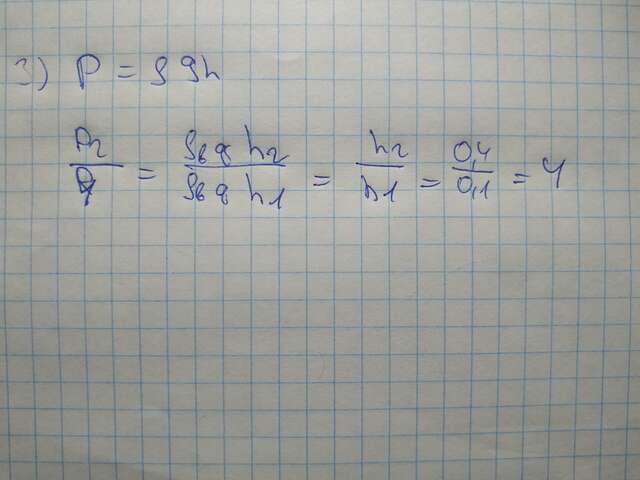 3) P = ρgh
P₂/P₁ = ρв g h₂/ρв g h₁ = h₂/h₁ = 0,4/0,1 = 4